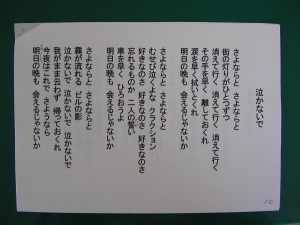 泣かないで
さよならと さよならと
街の灯りがひとつずつ
消えて行く 消えて行く 消えて行く
その手を早く 離しておくれ
涙を早く拭いとくれ
明日の晩も 会えるじゃないか
さよならと さよならと
むせび泣くよな クラクション
好きなのさ 好きなのさ 好きなのさ
忘れるものか 二人の誓い
車を早く ひろおうよ
明日の晩も 会えるじゃないか
さよならと さよならと
霧が流れる ビルの影
泣かないで 泣かないで 泣かないで
我がまま云わず 帰っておくれ
今夜はこれで さようなら
明日の晩も 会えるじゃないか
10